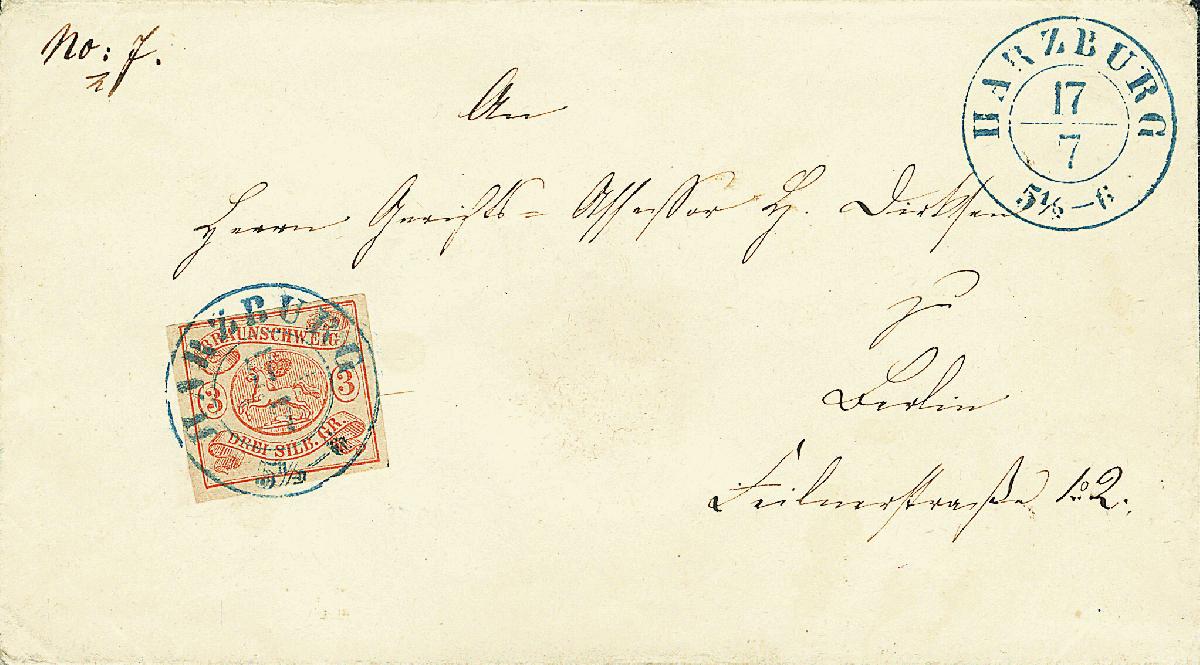 No: 7.
HARZBURG
17
7
5½–6
An
Herrn Gerichts-Assessor H. Dirksen
zu
Berlin
Feilnerstraße No 2.
HARZBURG
BRAUNSCHWEIG
17
3 3
7
DREI SILB. GR.